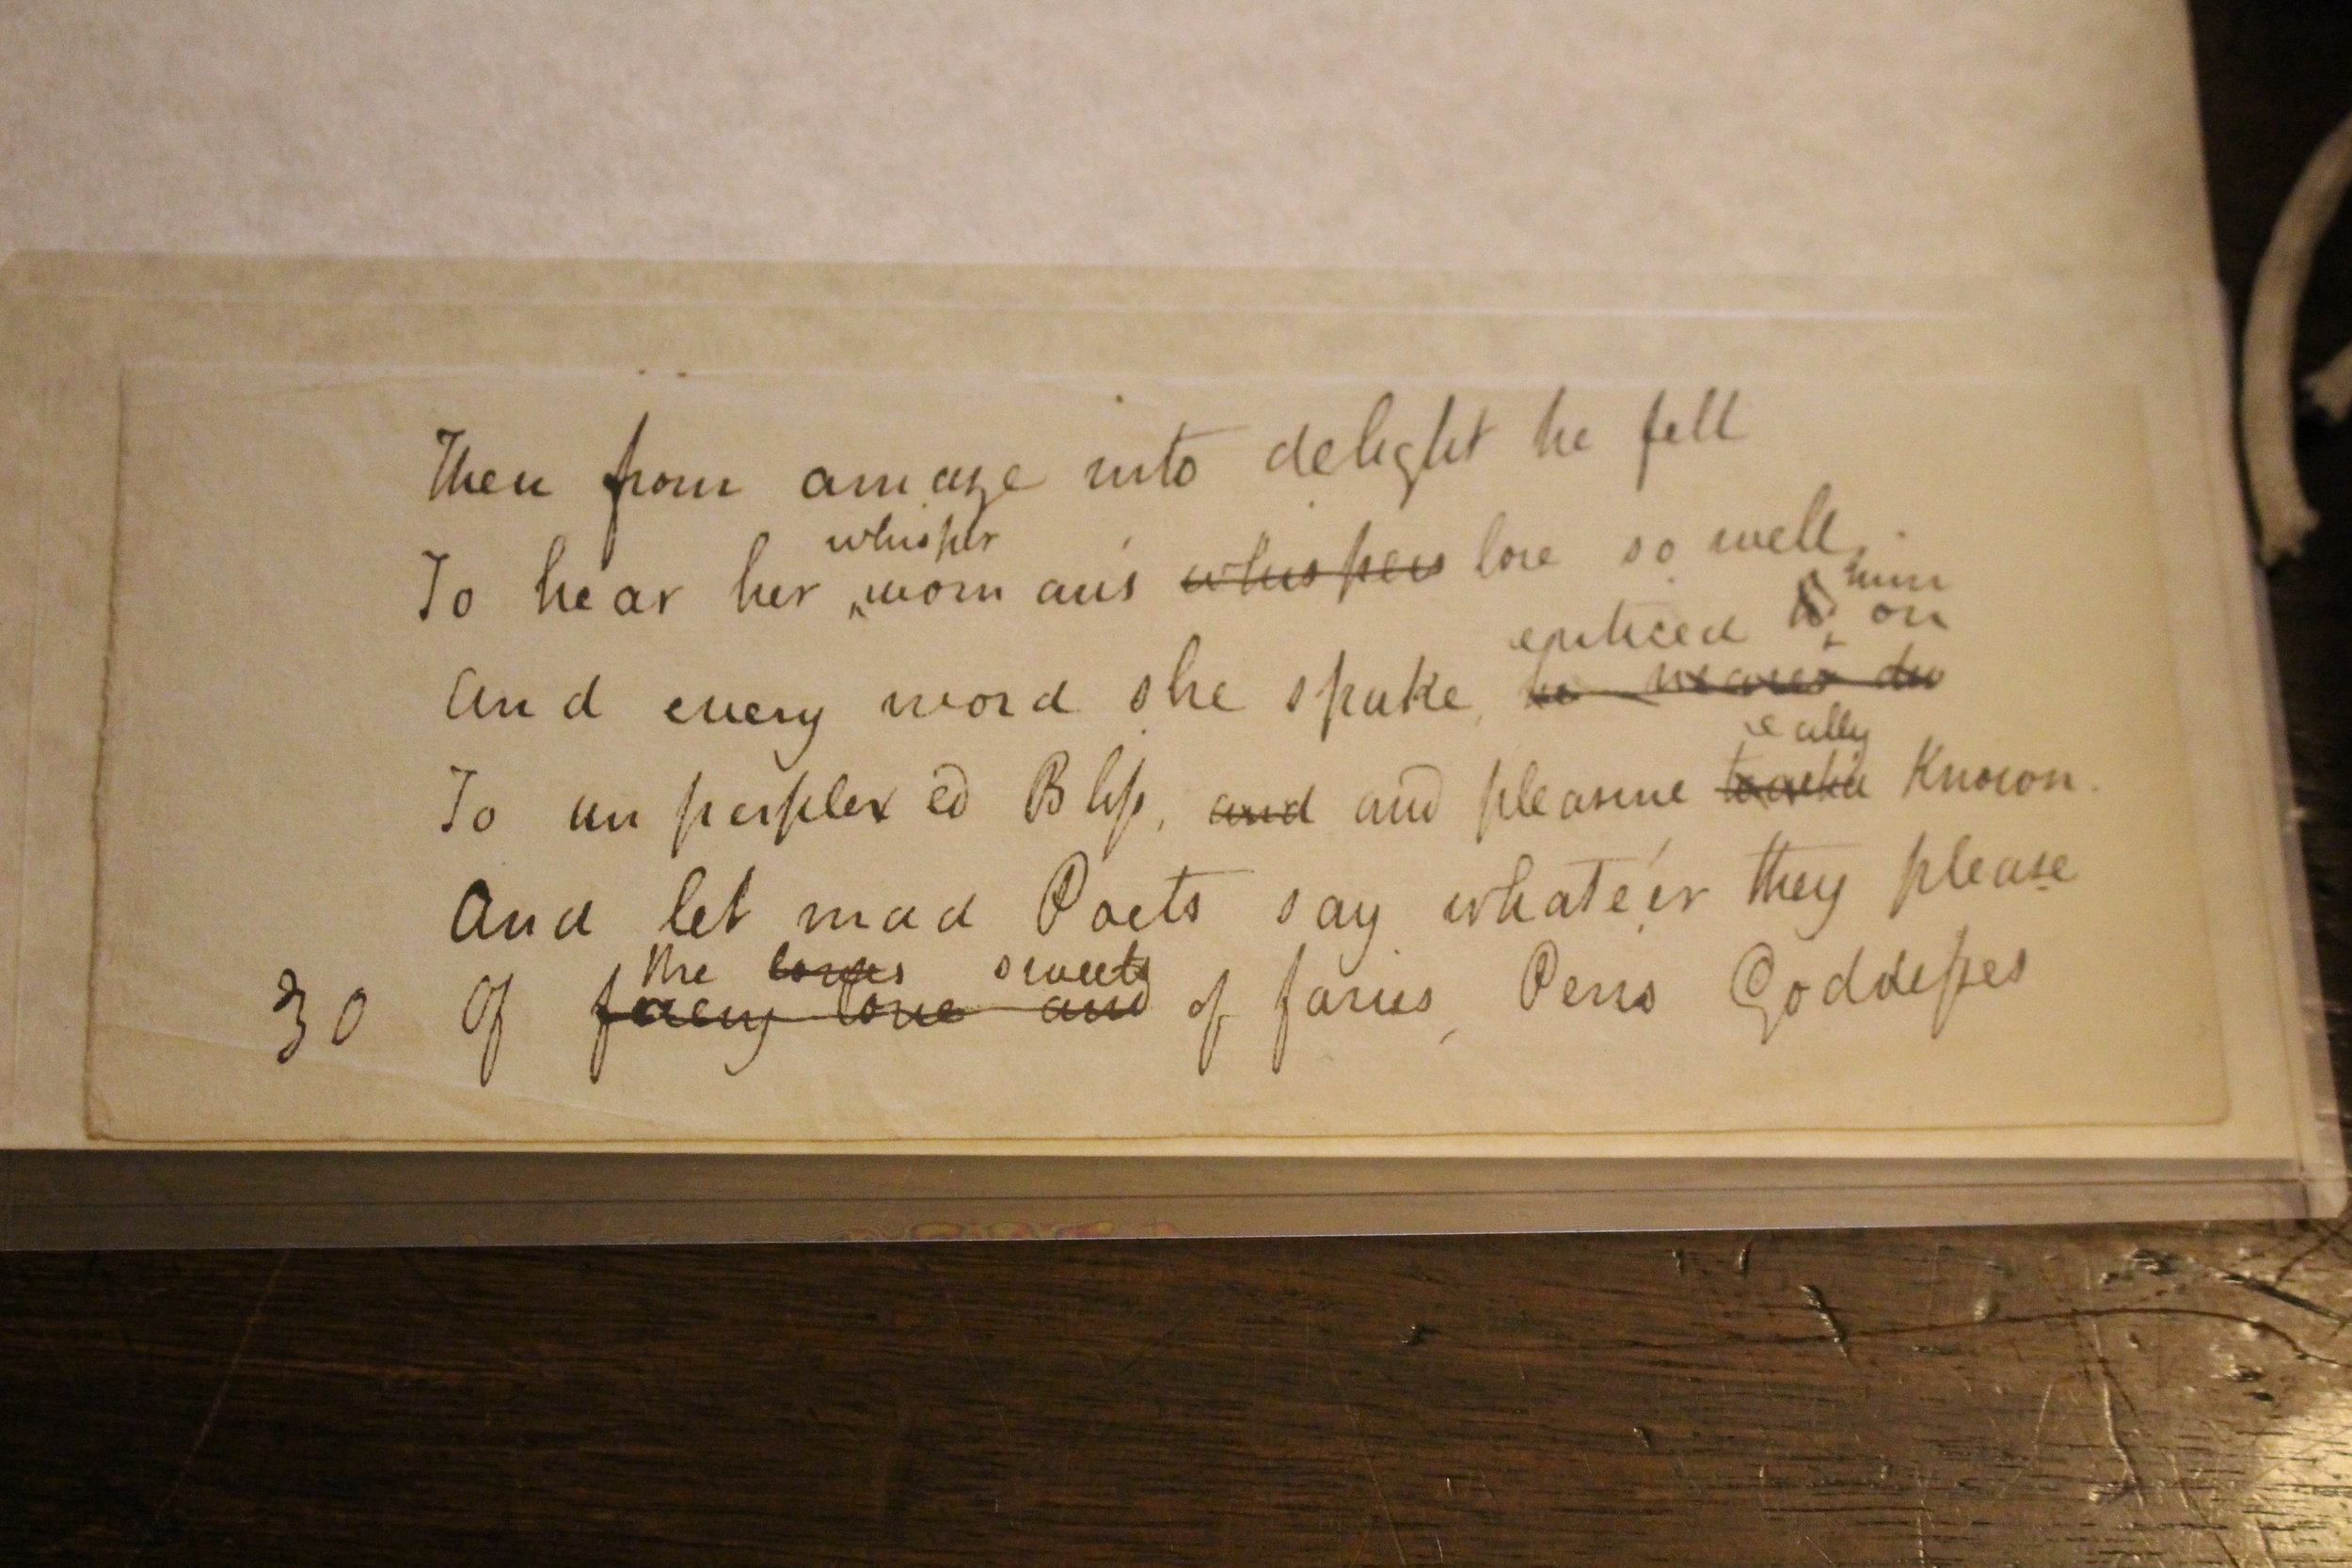 Then from amaze into delight he fell
whisper
To hear her woman's whispers lore so well
him
enticed on
And every word she spake he nearer
To unperplexed Bliss, and and pleasure Known.
And let mad Poets say whate'er they please
the loves sweets
30 Of faery love and of faries, Peris Goddesses